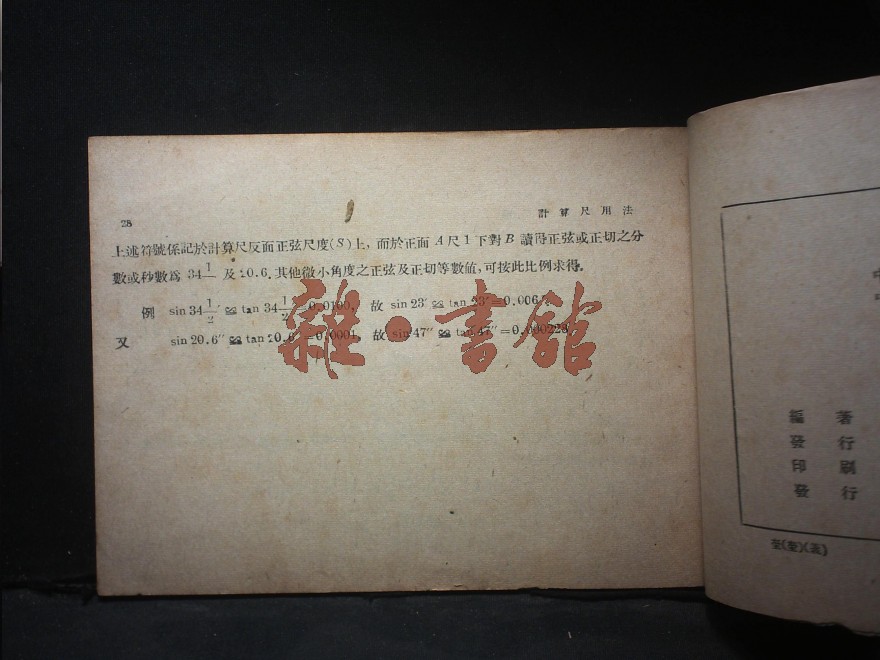 28
計算尺用法
上述符號係記於計算尺反面正弦尺度(S)上,而於正面 A 尺 1 下對 B 讀得正弦或正切之分
數或秒數爲 34 1 及 20.6.其他微小角度之正弦及正切等數值,可按此比例求得.
例 sin 34 1/2′ ≌ tan 34 1/2′=0.0100, 故 sin 23′ ≌ tan 23′=0.006
又 sin 20.6″ ≌ tan 20.6″=0.0001, 故 sin 47″ ≌ tan 47″=0.000228
雜·書館
編著
發行
印刷
發行